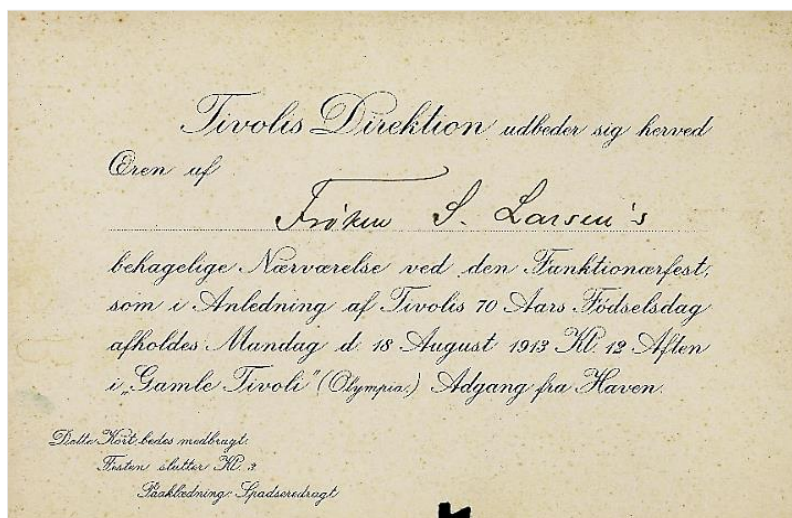 Tivolis Direktion udbeder sig herved
Æren af
Frøken S. Larsen's
behagelige Nærværelse ved den Funktionærfest,
som i Anledning af Tivolis 70 Aars Fødselsdag
afholdes Mandag d. 18 August 1913 Kl. 12 Aften
i „Gamle Tivoli" (Olympia,) Adgang fra Haven.
Dette Kort bedes medbragt.
Festen slutter Kl. 3
Paaklædning: Spadseredragt